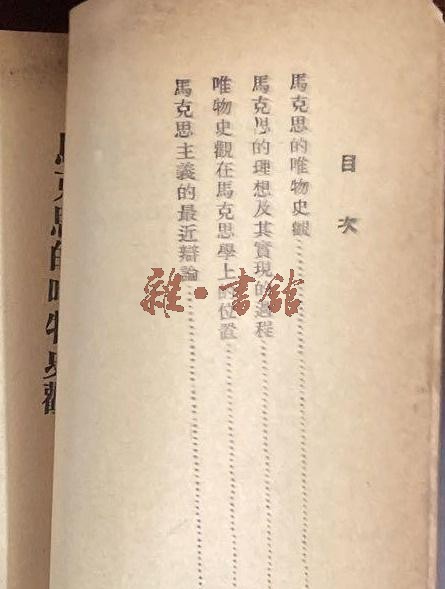 目次
馬克思的唯物史觀
馬克思的理想及其實現的過程
唯物史觀在馬克思學上的位置
馬克思主義的最近辯論
馬克思的唯物史觀
雜·書館